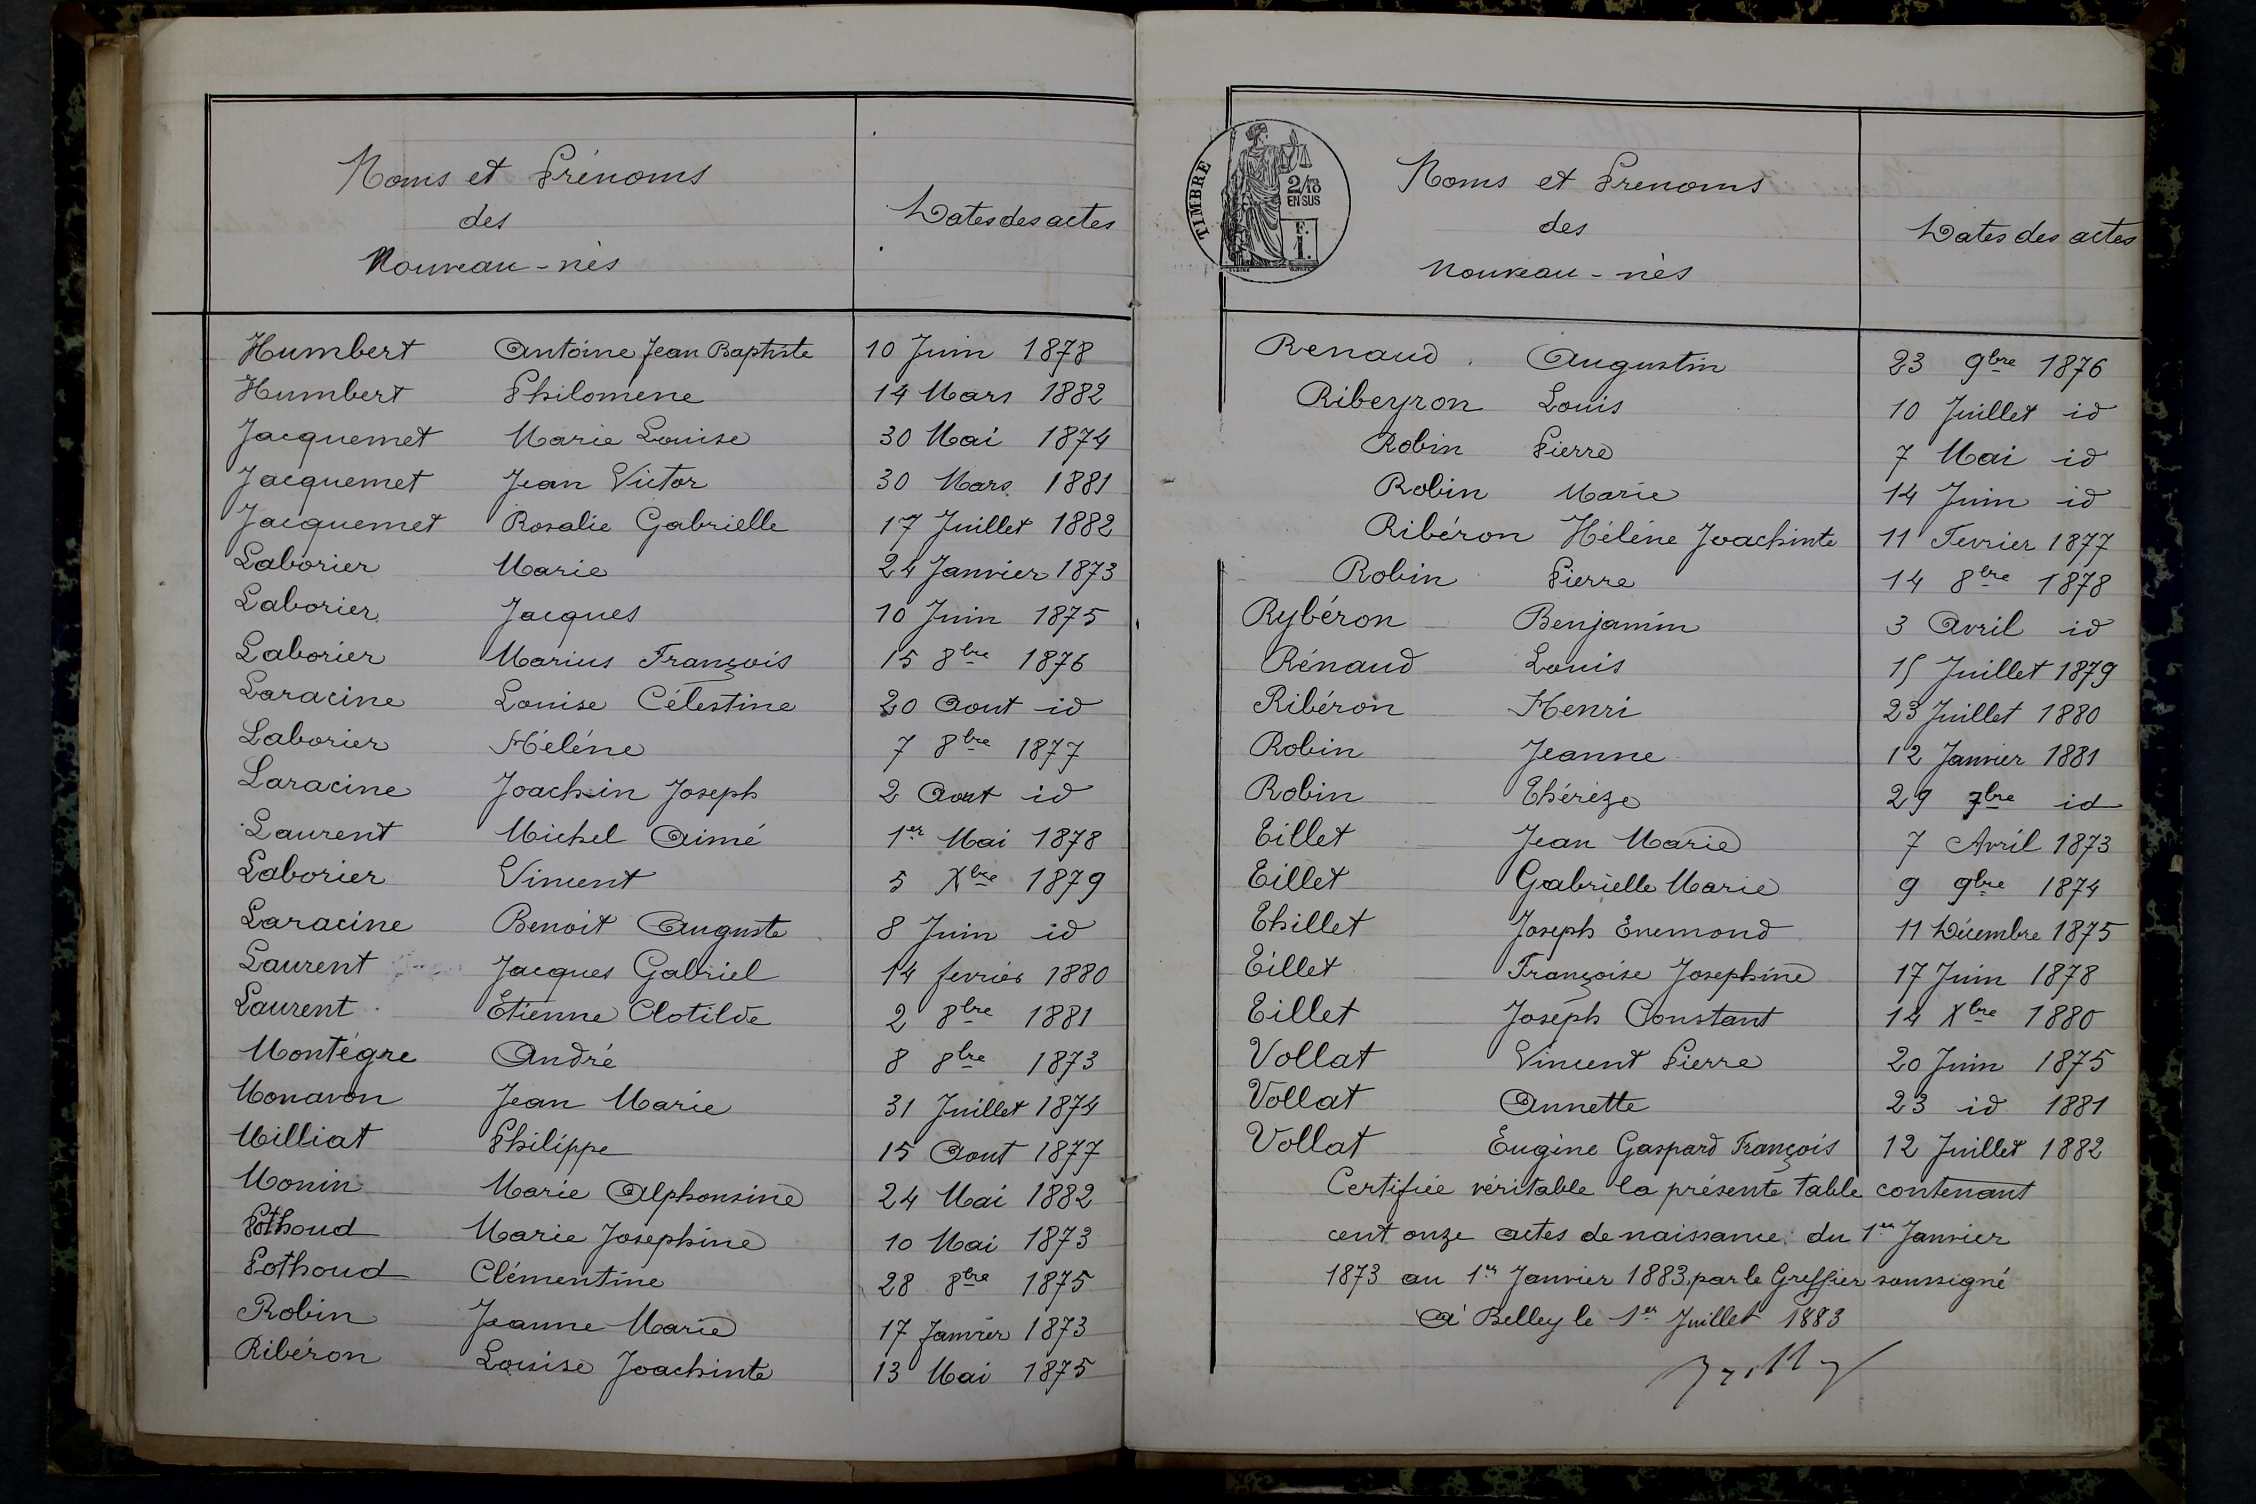 Noms et Prénoms
des
Nouveau-nés
Dates des actes
Humbert Antoine Jean Baptiste 10 Juin 1878
Humbert Philomene 14 Mars 1882
Jacquemet Marie Louise 30 Mai 1874
Jacquemet Jean Victor 30 Mars 1881
Jacquemet Rosalie Gabrielle 17 Juillet 1882
Laborier Marie 24 Janvier 1873
Laborier Jacques 10 Juin 1875
Laborier Marius François 15 8bre 1876
Laracine Louise Célestine 20 Aout id
Laborier Héléne 7 8bre 1877
Laracine Joachin Joseph 2 Aout id
Laurent Michel Aimé 1er Mai 1878
Laborier Vincent 5 Xbre 1879
Laracine Benoit Auguste 8 Juin id
Laurent Jacques Gabriel 14 fevrier 1880
Laurent Etienne Clotilde 2 8bre 1881
Montégre André 8 8bre 1873
Monavon Jean Marie 31 Juillet 1874
Milliat Philippe 15 Aout 1877
Monin Marie Alphonsine 24 Mai 1882
Pothoud Marie Josephine 10 Mai 1873
Pothoud Clémentine 28 8bre 1875
Robin Jeanne Marie 17 Janvier 1873
Ribéron Louise Joachinte 13 Mai 1875
TIMBRE
2/10
EN SUS
F.
1.
Noms et Prenoms
des
Nouveau-nès
Dates des actes
Renaud Augustin 23 9bre 1876
Ribeyron Louis 10 Juillet id
Robin Pierre 7 Mai id
Robin Marie 14 Juin id
Ribéron Héléne Joachinte 11 Fevrier 1877
Robin Pierre 14 8bre 1878
Rybéron Benjamin 3 Avril id
Rénaud Louis 15 Juillet 1879
Ribéron Henri 23 Juillet 1880
Robin Jeanne 12 Janvier 1881
Robin Thérèze 29 7bre id
Tillet Jean Marie 7 Avril 1873
Tillet Gabrielle Marie 9 9bre 1874
Thillet Joseph Enemond 11 Décembre 1875
Tillet Françoise Josephine 17 Juin 1878
Tillet Joseph Constant 14 Xbre 1880
Vollat Vincent Pierre 20 Juin 1875
Vollat Annette 23 id 1881
Vollat Eugène Gaspard François 12 Juillet 1882
Certifiée véritable la présente table contenant
cent onze actes de naissance du 1er Janvier
1873 au 1er Janvier 1883 par le Greffier soussigné
A Belley le 1er Juillet 1883